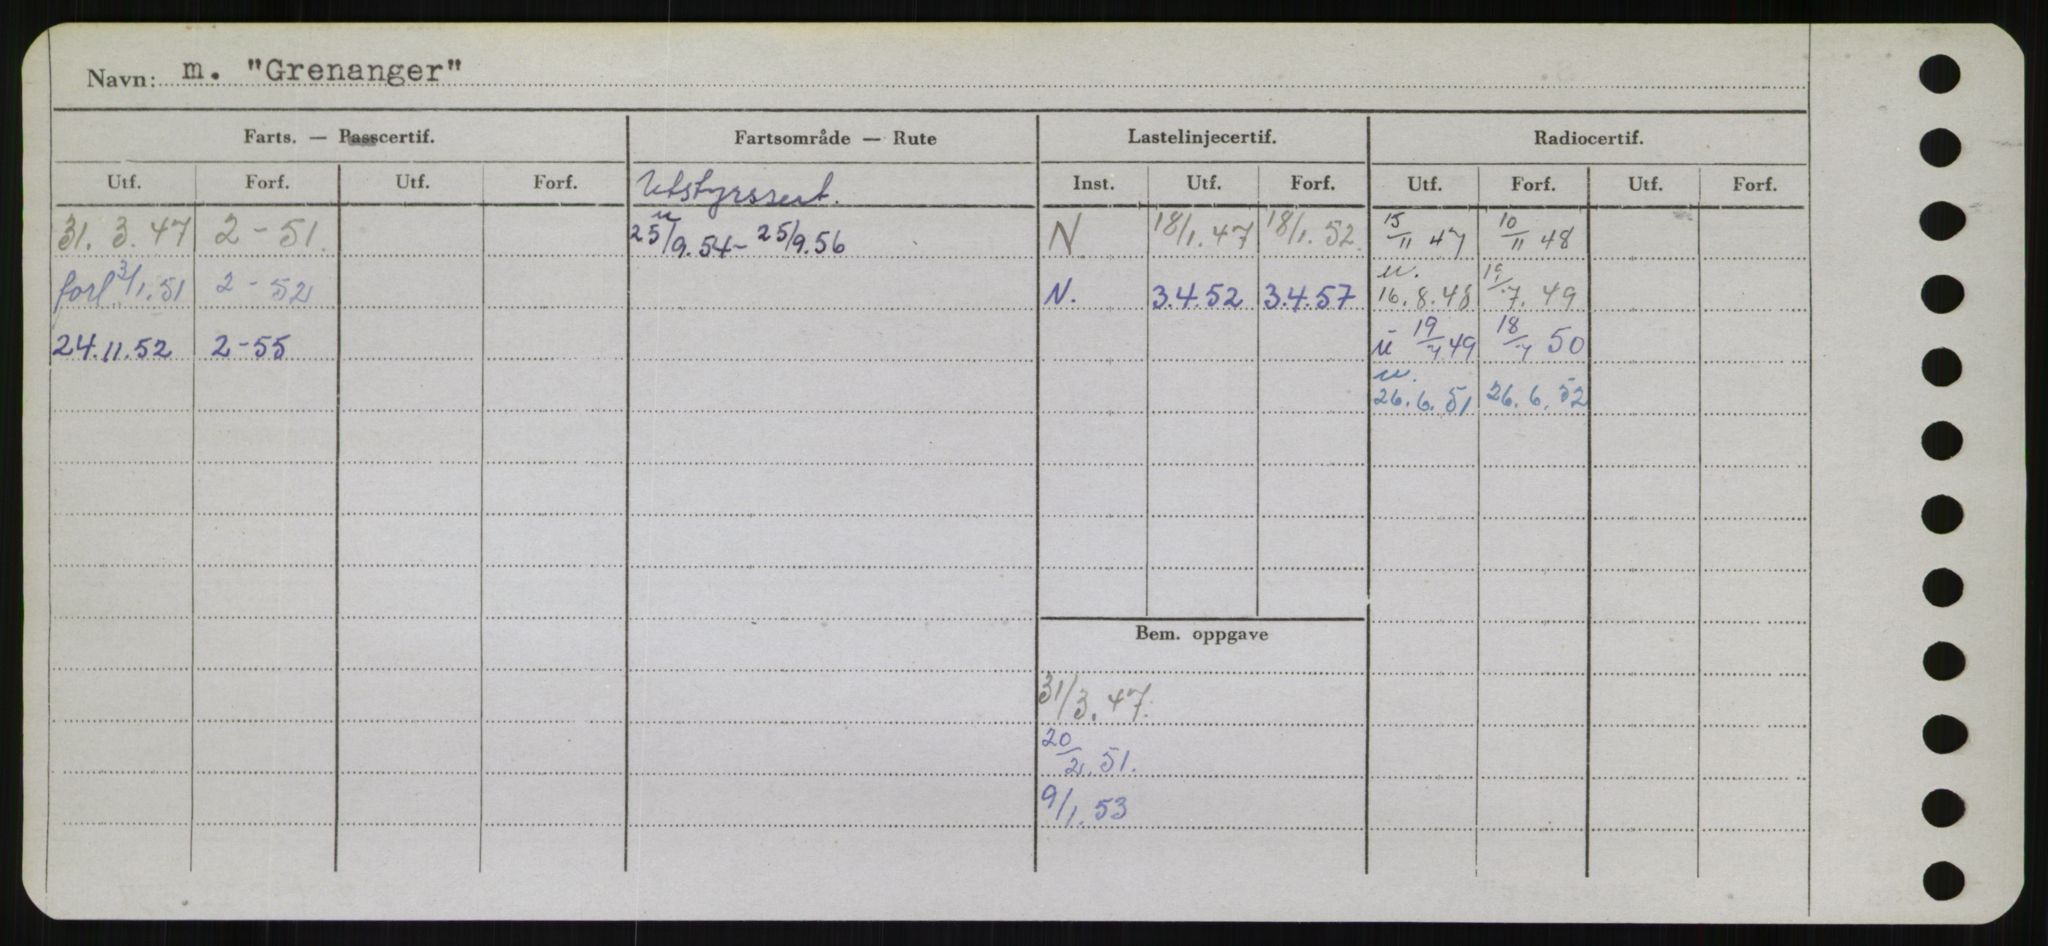 Navn: m. "Grenanger"
Farts. — Passcertif. Fartsområde — Rute Lastelinjecertif. Radiocertif.
Utf. Forf. Utf. Forf. Utstyrssert. Inst. Utf. Forf. Utf. Forf. Utf. Forf.
31. 3. 47 2 - 51. u 25/9. 54 - 25/9. 56 N 18/1. 47 18/1. 52. 15/11 47 10/11 48
forl 3/1. 51 2 - 52 N. 3.4.52 3.4.57 u. 16. 8. 48 19/7. 49
24.11.52 2-55 u 19/7 49 18/7 50
u. 26. 6. 51 26. 6. 52
Bem. oppgave
31/3. 47.
20/2. 51.
9/1. 53